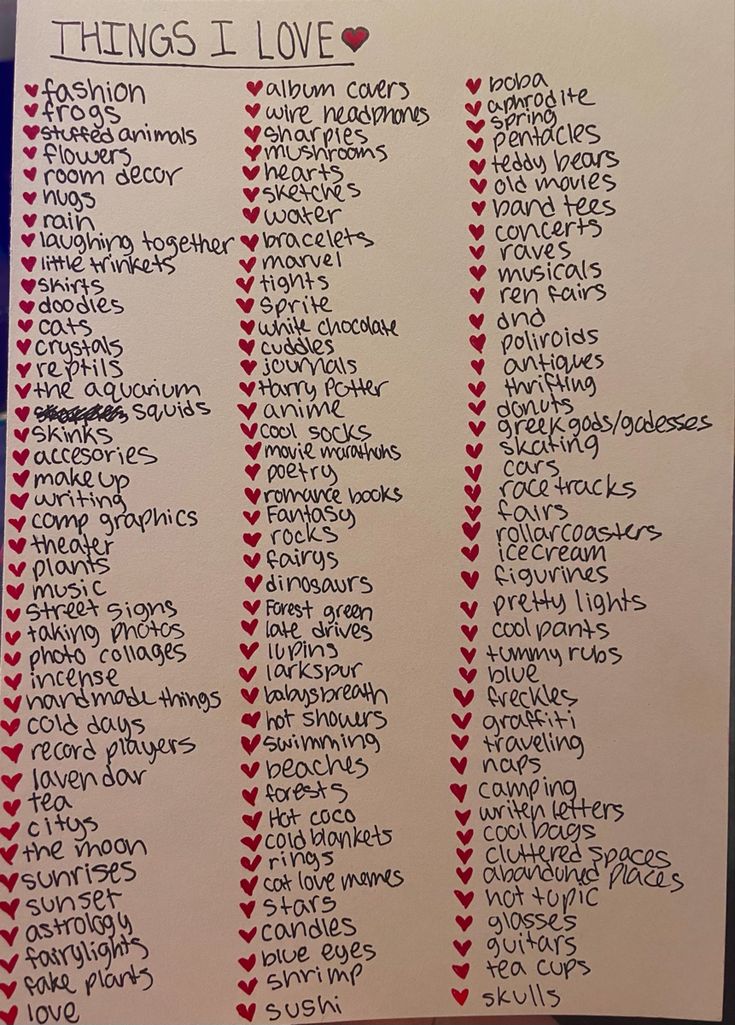 THINGS I LOVE
fashion
frogs
stuffed animals
flowers
room decor
hugs
rain
laughing together
little trinkets
skirts
doodles
cats
crystals
reptils
the aquarium
squids
skinks
accesories
makeup
writing
comp graphics
theater
plants
music
street signs
taking photos
photo collages
incense
handmade things
cold days
record players
lavendar
tea
citys
the moon
sunrises
sunset
astrology
fairylights
fake plants
love
album covers
wire headphones
sharpies
mushrooms
hearts
sketches
water
bracelets
marvel
tights
sprite
white chocolate
cuddles
journals
Harry Potter
anime
cool socks
movie marathons
poetry
romance books
Fantasy
rocks
fairys
dinosaurs
Forest green
late drives
lupins
larkspur
babysbreath
hot showers
swimming
beaches
forests
Hot coco
cold blankets
rings
cat love memes
stars
candles
blue eyes
shrimp
sushi
boba
aphrodite
spring
pentacles
teddy bears
old movies
band tees
concerts
raves
musicals
ren fairs
dnd
poliroids
antiques
thrifting
donuts
greek gods/godesses
skating
cars
racetracks
fairs
rollarcoasters
icecream
figurines
pretty lights
cool pants
tummy rubs
blue
freckles
graffiti
traveling
naps
camping
writen letters
cool bags
cluttered spaces
abandoned places
hot topic
glasses
guitars
tea cups
skulls